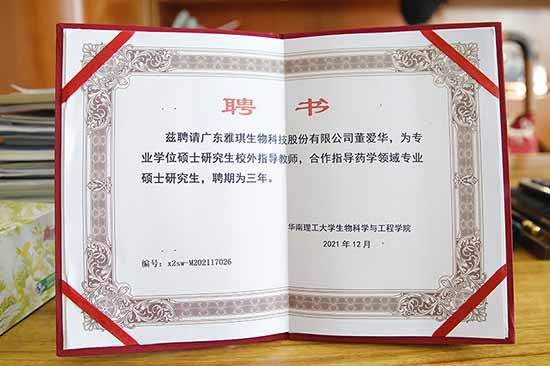 聘 书
兹聘请广东雅琪生物科技股份有限公司董爱华，为专
业学位硕士研究生校外指导教师，合作指导药学领域专业
硕士研究生，聘期为三年。
华南理工大学生物科学与工程学院
2021 年 12 月
编号：x2sw-M202117026